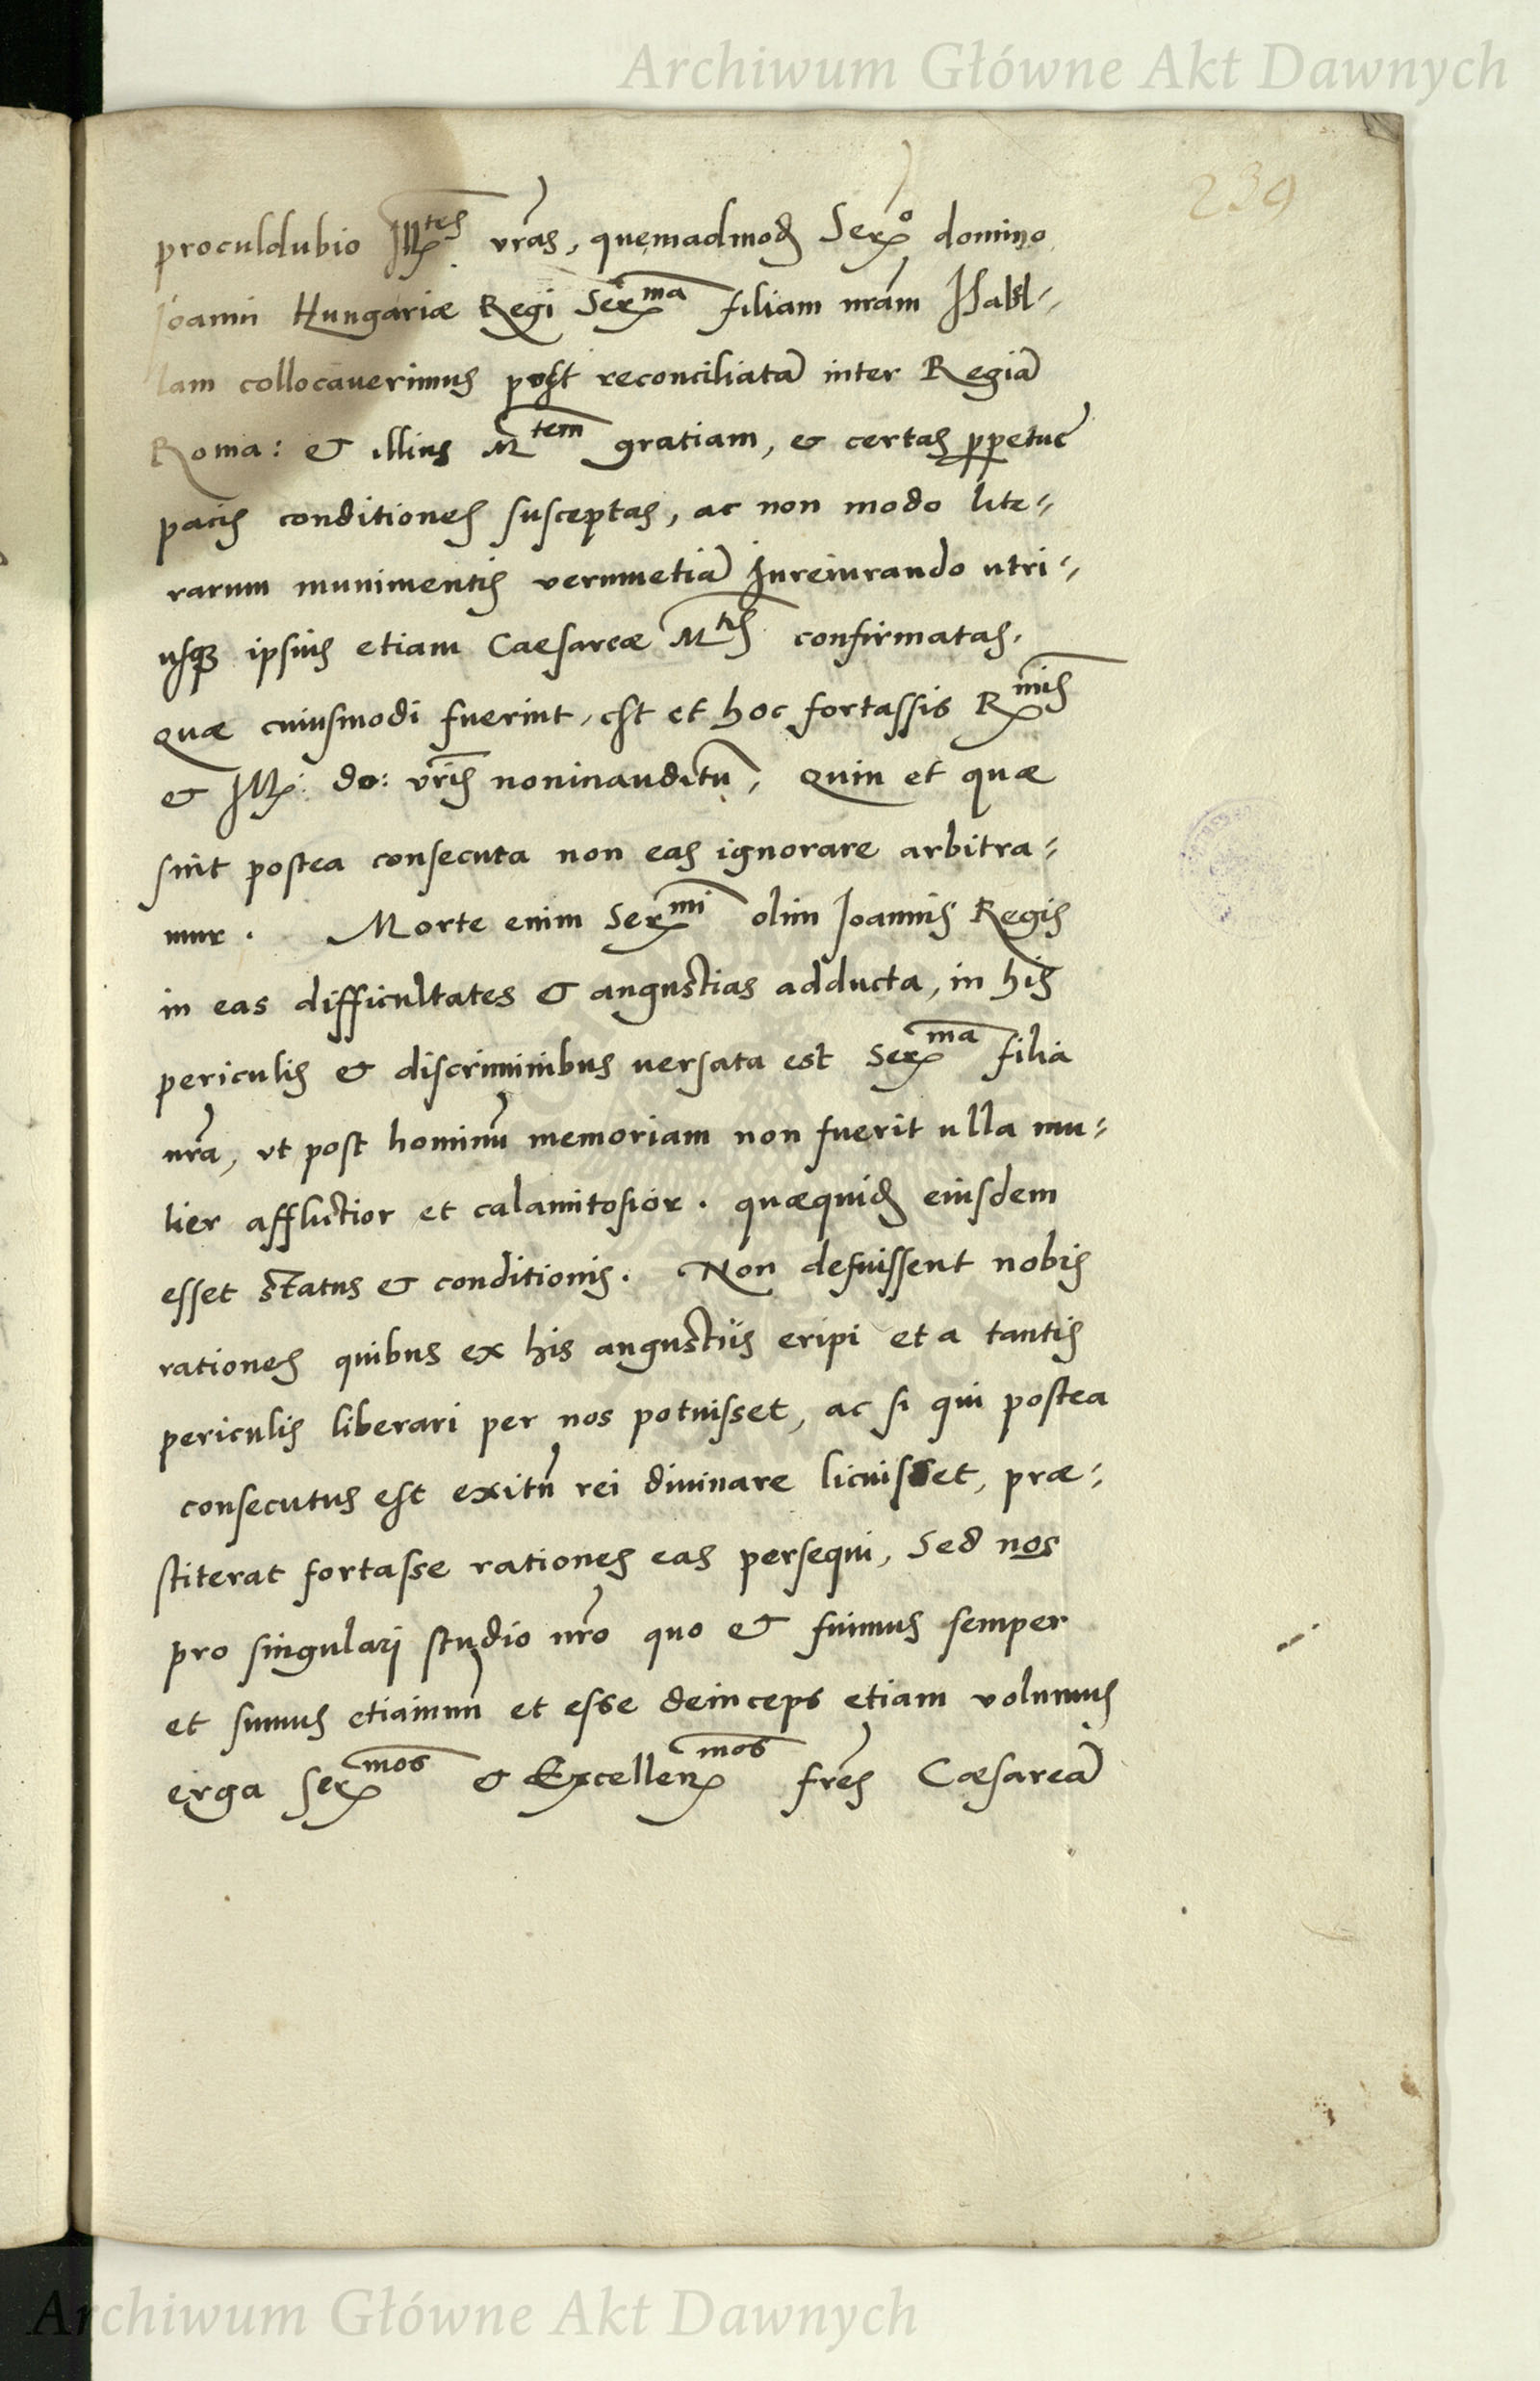 Archiwum Główne Akt Dawnych
239
proculdubio Ill^tes vras, quemadmod Ser^o domino
Joanni Hungariæ Regi Ser^ma filiam nram Isabl-
lam collocaverimus post reconciliatã inter Regiã
Roma: & illius M^tem gratiam, & certas ppetuę
pacis conditiones susceptas, ac non modo lite-
rarum munimentis verumetiã Jureiurando utri-
usq ipsius etiam Caesareæ M^tis confirmatas.
Quæ cuiusmodi fuerint, est et hoc fortassis R^mis
& Ill: do: vris noninauditũ, Quin et quæ
sint postea consecuta non eas ignorare arbitra-
mur. Morte enim Ser^mi olim Joannis Regis
in eas difficultates & angustias adducta, in his
periculis & discriminibus versata est Ser^ma filia
nra, ut post hominũ memoriam non fuerit ulla mu-
lier afflictior et calamitosior. quæquid eiusdem
esset status & conditionis. Non defuissent nobis
rationes quibus ex his angustiis eripi et a tantis
periculis liberari per nos potuisset, ac si qui postea
consecutus est exitũ rei divinare licuisset, præ-
stiterat fortasse rationes eas persequi, Sed nos
pro singulari studio nro quo & fuimus semper
et sumus etiamnũ et esse deinceps etiam volumus
erga Ser^mos & Excellen^mos fres Cæsareã
Archiwum Główne Akt Dawnych